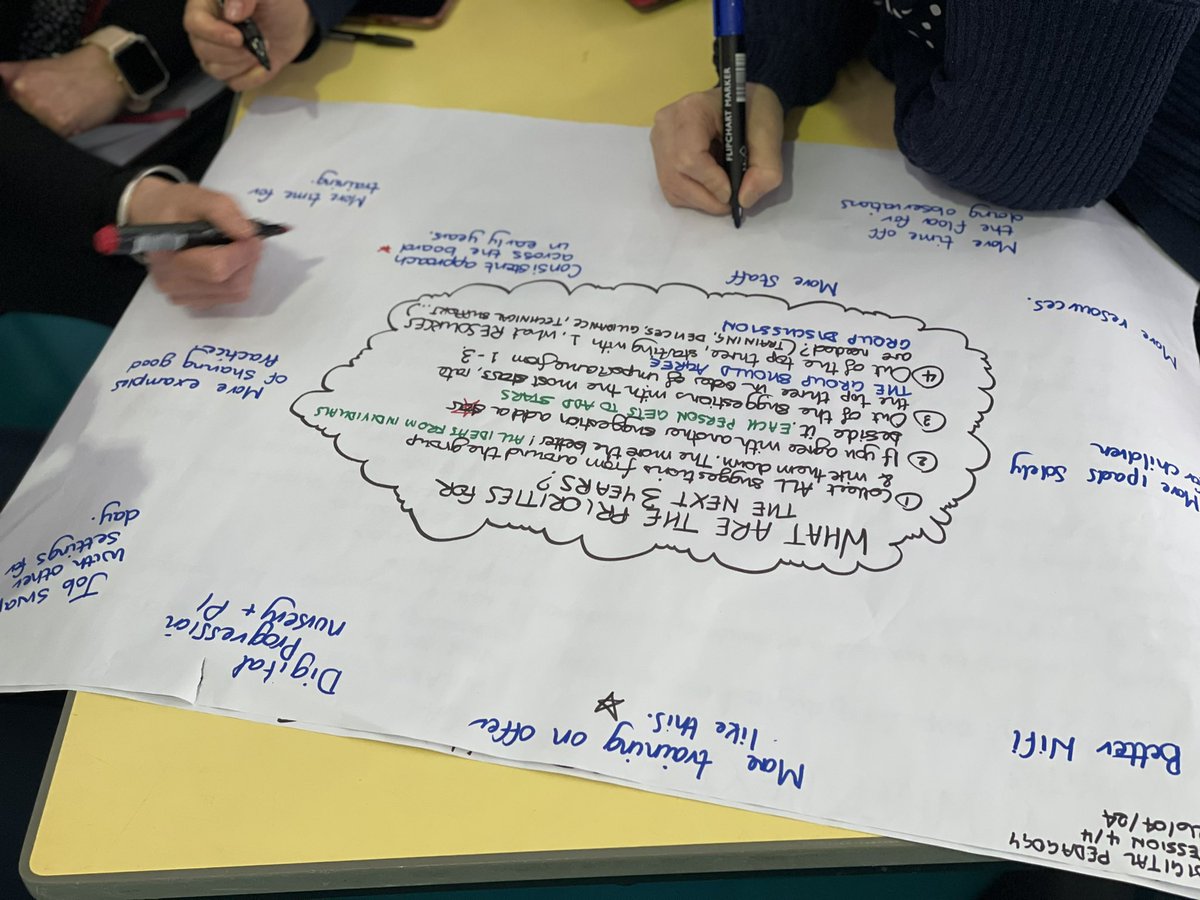 WHAT ARE THE PRIORITIES FOR
THE NEXT 3 YEARS?
① Collect ALL suggestions from around the group
& write them down. The more the better! ALL IDEAS FROM INDIVIDUALS
② If you agree with another suggestion add a
beside it. EACH PERSON GETS TO ADD STARS
③ Out of the suggestions with the most stars, rate
the top three in order of importance from 1-3.
THE GROUP SHOULD AGREE
④ Out of the top three, starting with 1, what RESOURCES
are needed? (TRAINING, DEVICES, GUIDANCE, TECHNICAL SUPPORT...)
GROUP DISCUSSION
DIGITAL PEDAGOGY
SESSION 4/4
Better Wifi
More training on offer
like this.
Digital
Progression
nursery + P1
Job swap
with other
settings for
day.
More examples
of sharing good
Practice
More time for
training.
Consistent approach
across the board
in early years.
More Staff
More time off
the floor for
doing observations
More resources.
More ipads solely
for children
FLIPCHART MARKER